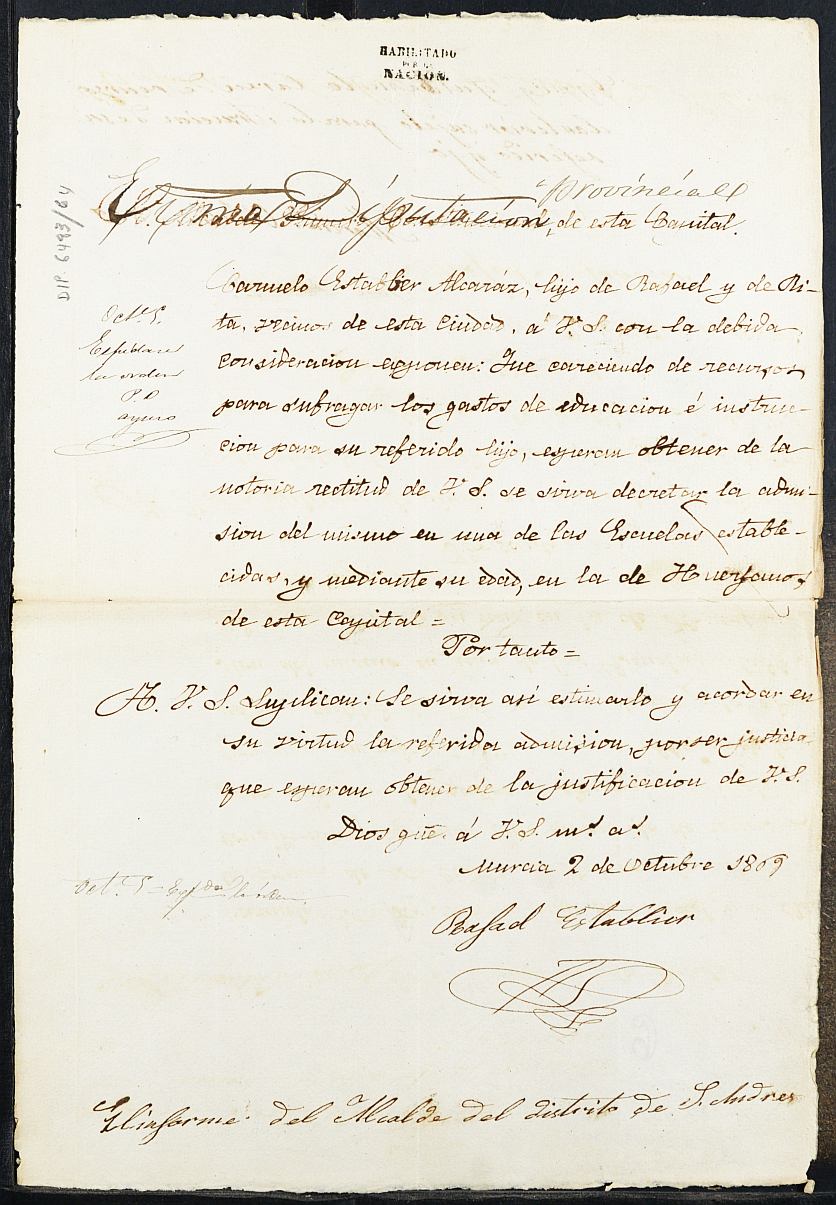 HABILITADO
POR LA
NACION.
DIP. 6493/64
Excma Diputación Provincial
de esta Capital.
Octe. 5.
Espidase
la orden
P. D
ayuso
Carmelo Establier Alcaráz, hijo de Rafael y de Ri-
ta, vecinos de esta Ciudad, á V. S. con la debida
consideracion esponen: Que careciendo de recursos
para sufragar los gastos de educacion é instruc-
cion para su referido hijo, esperan obtener de la
notoria rectitud de V. S. se sirva decretar la admi-
sion del mismo en una de las Escuelas estable-
cidas, y mediante su edad, en la de Huerfanos,
de esta Capital =
Por tanto =
A. V. S. Suplican: Se sirva así estimarlo y acordar en
su virtud la referida admision, por ser justicia
que esperan obtener de la justificacion de V. S.
Dios gue. á V. S. ms. as.
Murcia 2 de Octubre 1869
Octe. 5 - Espdase la orden.
Rafael Establier
El informe del Alcalde del distrito de S. Andres